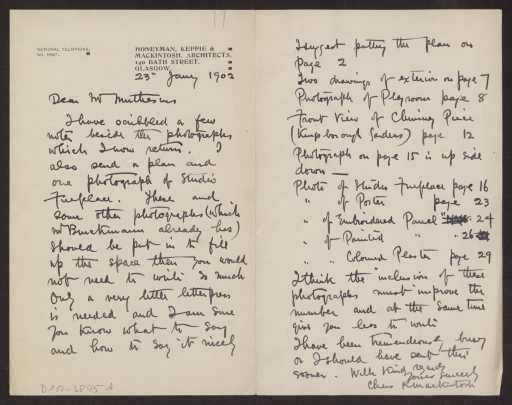 17
NATIONAL TELEPHONE,
HONEYMAN, KEPPIE &
MACKINTOSH, ARCHITECTS,
140 BATH STREET,
GLASGOW,
23rd Jany 1902
Dear Mr Muthesius
I have scribbled a few
notes beside the photographs
which I now return. I
also send a plan and
one photograph of Studio
Fireplace. These and
some other photographs (which
Mr Bruckmann already has)
should be put in to fill
up the space then you would
not need to write so much
Only a very little letterpress
is needed and I am sure
you know what to say
and how to say it nicely
I suggest putting the plan on
Page 2
Two drawings of exterior on page 7
Photograph of Playroom page 8
Front View of Chimney Piece
(Kingsborough Gardens) page 12
Photograph on page 15 is up side
down —
Photo of Studio Fireplace page 16
" of Poster page 23
" of Embroidered Panel " 24
" of Painted " " 26
" " Coloured Plaster page 29
I think the inclusion of these
photographs must improve the
number and at the same time
give you less to write
I have been tremendously busy
or I should have sent this
sooner. With kind regards
Yours sincerely
Chas R Mackintosh